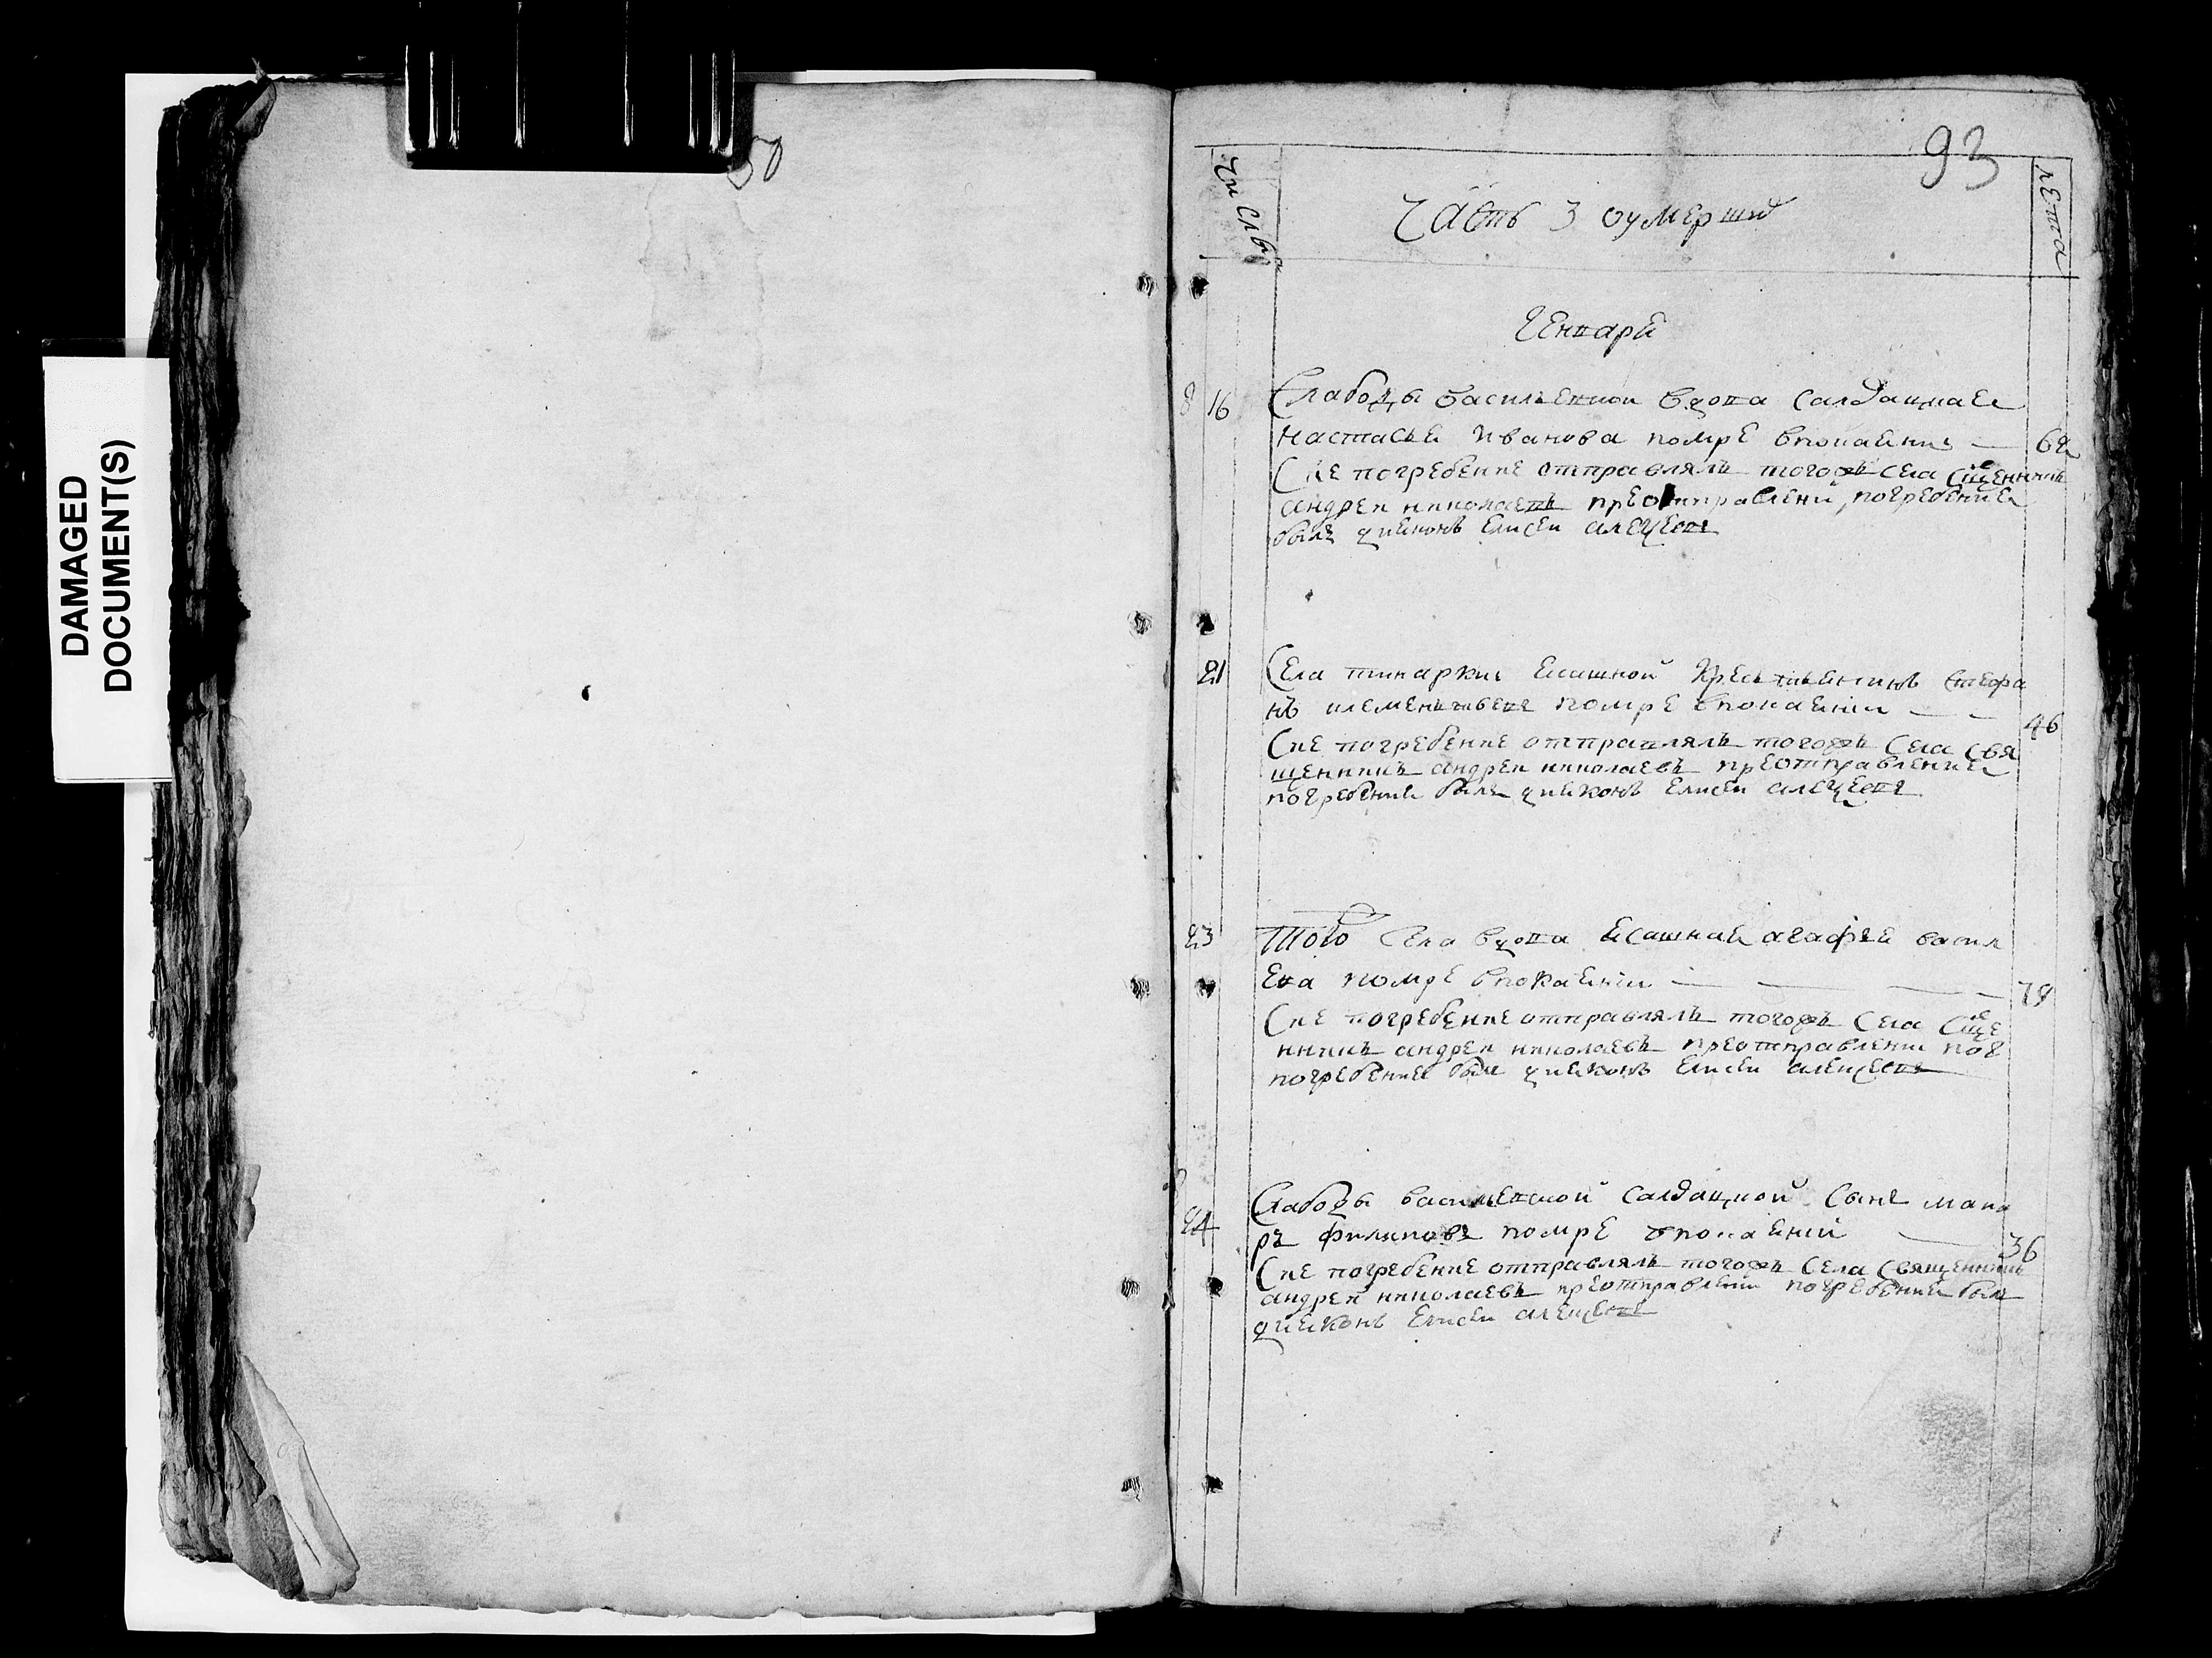 50
DAMAGED
DOCUMENT(S)
93
Числа
лета
Часть 3 оумерших
Генваря
16
Слабоды василевской вдова салдацкаѧ
Настасьѧ Иванова помре впокаѧнии — 62
Сие погребение отправлялъ тогожъ села сщенникъ
андреи николаевъ преотправлени, погребениѧ
былъ диѧконъ Елисеи алеѯеевъ
21
Села шинаркы ѧсашной крестьѧнинъ стефа
нъ клементьевъ помре впокаѧнии — — 46
Сие погребение отправлялъ тогожъ села свя
щенникъ андреи николаевъ преотправлениѧ
погребениѧ былъ диѧконъ Елисеи алеѯеевъ
23
Того села вдова ѧсашнаѧ агафьѧ васил
ева помре впокаѧнии — — — — 78
Сие погребение отправлялъ тогожъ села сще
нникъ андреи николаевъ преотправлени пог
погребениѧ былъ диѧконъ Елисеи алеѯеевъ
24
Слабоды василевской салдацкой сынъ мака
ръ филиповъ помре впокаѧнии — 36
Сие погребение отправлялъ тогожъ села священникъ
андреи николаевъ преотправлении погребениѧ былъ
диѧконъ Елисеи алеѯеевъ